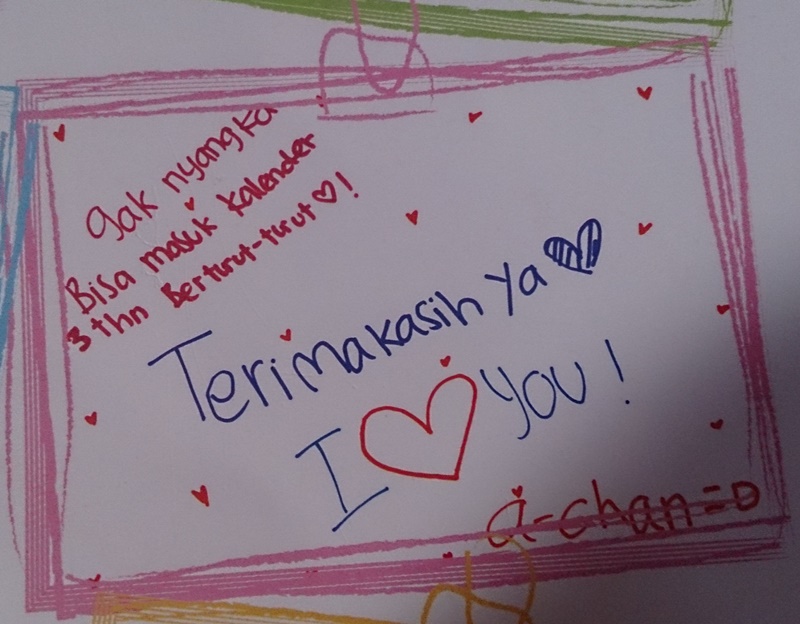 gak nyangka
Bisa masuk kalender
3 thn Berturut-turut ♡!
Terimakasih ya ♥
I ♡ YOU !
a-chan=D